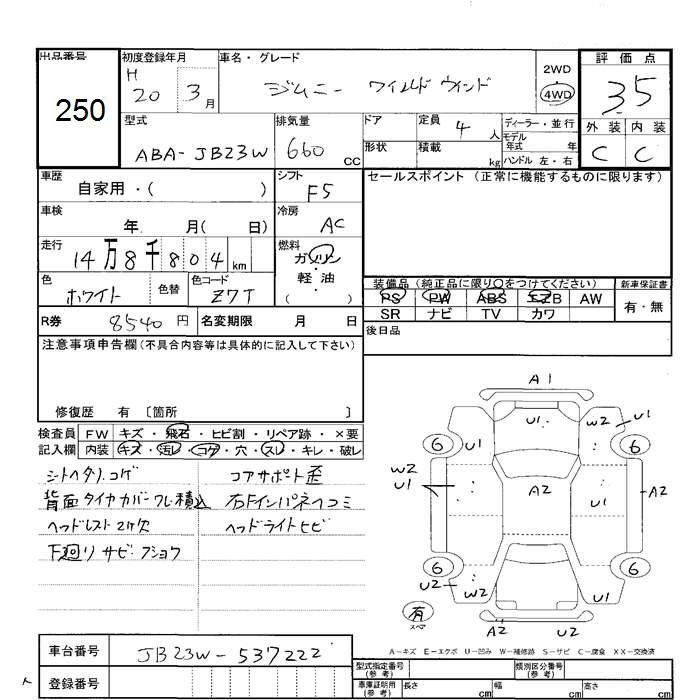 出品番号
250
初度登録年月
H
20 3 月
車名・グレード
ジムニー ワイルドウインド
2WD
4WD
評価点
3.5
外装 内装
C C
型式
ABA-JB23W
排気量
660 cc
ドア
形状
定員 4 人
積載 kg
ディーラー・並行
モデル年式 年
ハンドル 左・右
車歴
自家用・( )
シフト
F5
セールスポイント (正常に機能するものに限ります)
車検
年 月( 日)
冷房
AC
走行
14万8千804 km
燃料
ガソリン
・
軽・油
( )
色
ホワイト
色替
色コード
Z7T
装備品 (純正品に限り○をつけてください)
新車保証書
PS PW ABS エアB AW
有・無
SR ナビ TV カワ
R券 8540 円
名変期限 月 日
後日品
注意事項申告欄 (不具合内容等は具体的に記入して下さい)
修復歴 有 〔箇所 〕
検査員
記入欄
FW キズ・飛石・ヒビ割・リペア跡・×要
内装 キズ・汚レ・コゲ・穴・スレ・キレ・破レ
シートヘタリ.コゲ
コアサポート歪
背面タイヤカバーフレ積込
右Fインパネヘコミ
ヘッドレスト2ケ欠
ヘッドライトヒビ
下廻りサビ・フショク
A1
U1 W2 U1
6 U1 6
W2
U1
A2 U1 A2
6 6
U2 W2 U1
有
スペア
A2 U2
A-キズ E-エクボ U-凹み W-補修跡 S-サビ C-腐食 XX-交換済
車台番号
JB23W-537222
登録番号
型式指定番号
(参考)
類別区分番号
(参考)
車庫証明用
(参考)
長さ cm 幅 cm 高さ cm